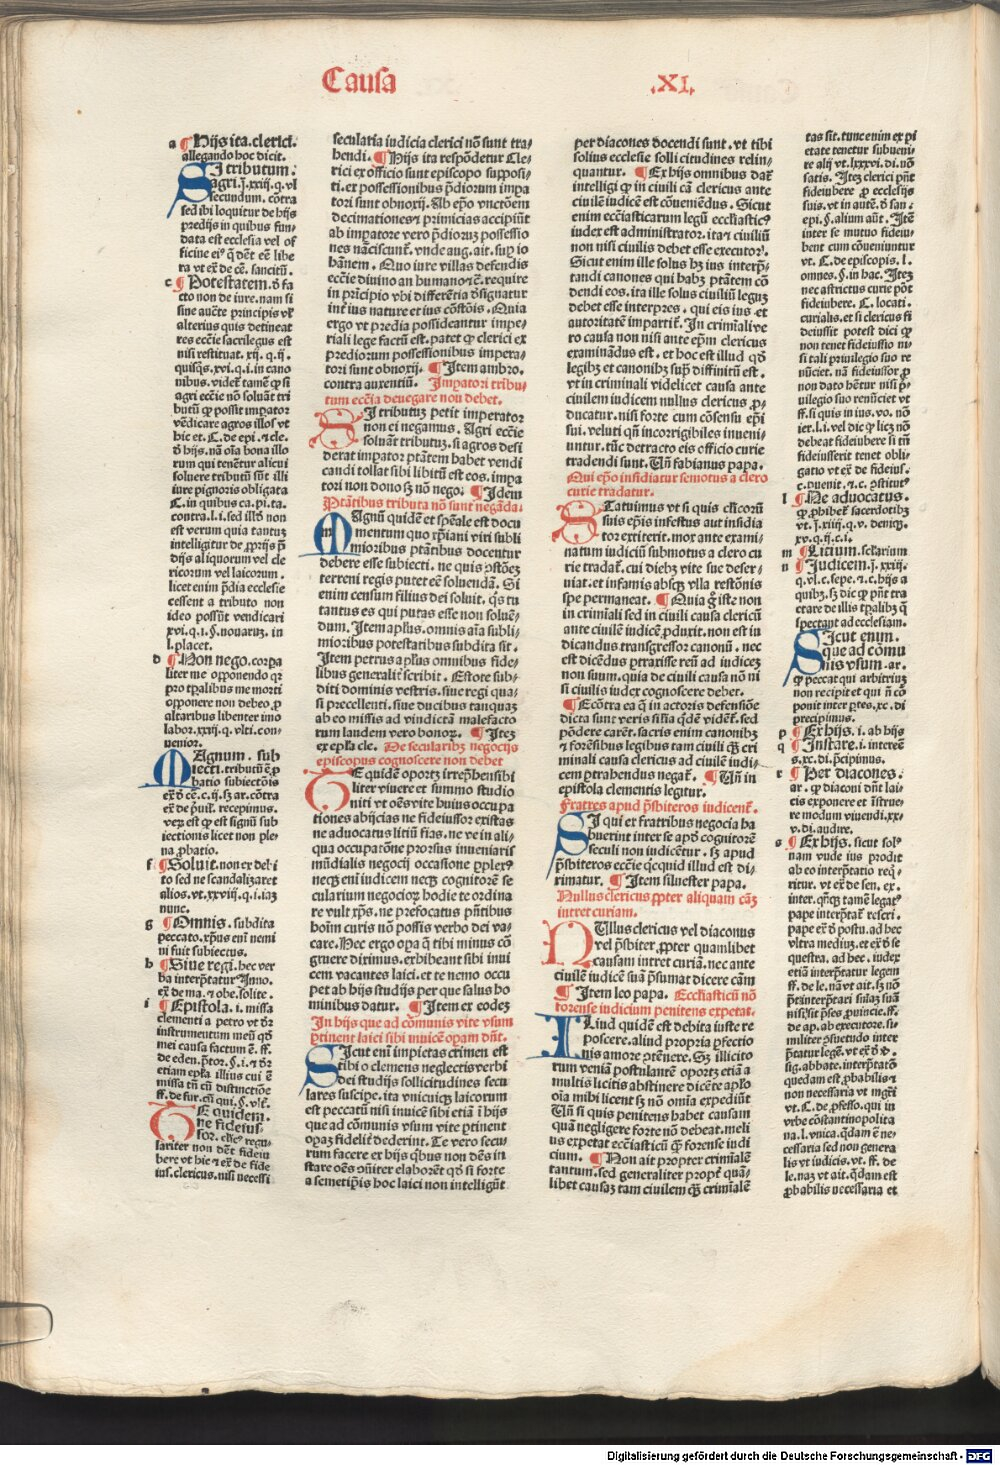 Causa .XI.
a ¶ Hijs ita. clerici.
allegando hoc dicit.
SI tributum.
agri. j. xxiij. q. vl
secundum. cōtra
sed ibi loquitur de hijs
predijs in quibus fun-
data est ecclesia vel of
c ¶ Potestatem. ō fa
cto non de iure. nam si
sine aucte principis vl'
alterius quis detineat
res eccie sacrilegus est
nisi restituat. xij. q. ij.
quisq̄s. xvi. q. i. in cano
nibus. videt tamē ꝙ si
agri eccie nō soluāt tri
butū ꝙ possit imꝑator
vēdicare agros illos vt
hic et. C. de epi. ⁊ cle.
rum qui tenētur alicui
soluere tributū sūt illi
iure pignoris obligata
C. in quibus ca. pi. ta.
contra. l. i. sed illd' non
est verum quia tantuȝ
intelligitur de ꝓprijs p̄
dijs aliquorum vel cle
ricorum vel laicorum.
licet enim p̄dia ecclesie
cessent a tributo non
ideo possūt vendicari
xvi. q. i. §. nouaruȝ. in
l. placet.
d ¶ Non nego. corꝑa
liter me opponendo qr
pro tꝑalibus me morti
opponere non debeo ꝓ
altaribus libenter imo
labor. xxiij. q. vlti. con-
uenior.
MAgnum. sub
iecti. tributū ē ꝓ
batio subiectōis
ex̄ ō cē. c. ij. sȝ ar. cōtra
ex̄ de p̄uil'. recepimus.
iectionis licet non ple-
na ꝓbatio.
f ¶ Soluit. non ex debi
to sed ne scandalizaret
alios. vt. xxviij. q. i. iaȝ
nunc.
g ¶ Omnis. subdita
peccato. xp̄us eni nemi
ni fuit subiectus.
h ¶ Siue regi. hec ver
ba interp̄tatur Inno.
ex̄ de ma. ⁊ obe. solite.
i ¶ Epistola. i. missa
clementi a petro vt d̄r
instrumentum meū qd̄
mei causa factum ē. ff.
de eden. p̄tor. §. i. ⁊ d̄r
etiam ep̄la illius cui ē
missa tn̄ cū distinctiōe
TE quidem.
ne fideius-
sor. clic⁹ regu-
lariter non dēt fideiu
bere vt hic ⁊ ex̄ de fide
ius. clericus. nisi necessi
secularia iudicia clerici nō sunt tra-
hendi. ¶ Hijs ita respōdetur Cle-
rici ex officio sunt episcopo supposi-
ti. ex possessionibus p̄diorum impa
tori sunt obnoxij. Ab ep̄o vnctōem
decimationes ⁊ primicias accipiūt
ab impatore vero p̄dioruȝ possessio
nes nāciscunt̄. vnde aug. ait. suꝑ io
hānem. Quo iure villas defendis
eccie diuino an humano ⁊c̄. require
in p̄ricipio vbi differētia d̄signatur
int̄ ius nature et ius cōstōnis. Quia
ergo vt predia possideantur impe-
riali lege factū est. patet ꝙ clerici ex
prediorum possessionibus impera-
tori sunt obnoxij. ¶ Item ambro.
contra auxentiū. Imꝑatori tribu-
tum eccia denegare non debet.
SI tributuȝ petit imperator
non ei negamus. Agri eccie
soluāt tributuȝ. si agros desi
derat impator ptātem habet vendi
candi tollat sibi libitū est eos. impa
tori non dono sȝ nō nego. ¶ Idem
Ptātibus tributa nō sunt negāda.
MAgnū quidē et sp̄eale est docu
mentum quo xp̄iani viri subli
mioribus ptātibus docentur
debere esse subiecti. ne quis ꝯstōeȝ
terreni regis putet eē soluendā. Si
enim censum filius dei soluit. q̄s tu
tantus es qui putas esse non soluē-
dum. Item aplus. omnis aīa subli-
mioribus potestatibus subdita sit.
Item petrus aplus omnibus fide-
libus generalit' scribit. Estote sub-
diti dominis vestris. siue regi qua-
si precellenti. siue ducibus tanquaȝ
ab eo missis ad vindictā malefacto
rum laudem vero bonoꝝ. ¶ Iteȝ
ex ep̄la cle. De secularibȝ negocijs
episcopus cognoscere non debet
TE quidē oportȝ irrep̄hensibi
liter viuere et summo studio
niti vt oēs vite huius occupa
tiones abijcias ne fideiussor existas
ne aduocatus litiū fias. ne ve in ali-
qua occupatōne prorsus inueniaris
mūdialis negocij occasione ꝑplex⁹
necȝ eni iudicem necȝ cognitorē se
cularium negocioꝝ hodie te ordina
re vult xp̄s. ne prefocatus p̄ntibus
hoīm curis nō possis verbo dei va-
care. Hec ergo oꝑa q̄ tibi minus cō
gruere diximus. exhibeant sibi inui
cem vacantes laici. et te nemo occu
pet ab hijs studijs per que salus ho
minibus datur. ¶ Item ex eodeȝ
In hijs que ad cōmunis vite vsum
ꝑtinent laici sibi inuicē oꝑam dn̄t.
SIcut eni impietas crimen est
tibi o clemens neglectis verbi
dei studijs sollicitudines secu
lares suscipe. ita vnicuiqȝ laicorum
est peccatū nisi inuicē sibi etiā ī hijs
que ad cōmunis vsum vite ꝑtinent
oꝑaȝ fidelit' dederint. Te vero secu-
rum facere ex hijs q̄bus non dēs in
stare oēs ꝯīt̄er elaborēt qd̄ si forte
a semetip̄is hoc laici non intelligūt
per diacones docendi sunt. vt tibi
solius ecclesie solli citudines relin-
quantur. ¶ Ex hijs omnibus dat̄
intelligi ꝙ in ciuili cā clericus ante
ciuilē iudicē est cōueniēdus. Sicut
enim ecciasticarum legū ecclīastic⁹
iudex est administrator. ita ⁊ ciuiliū
non nisi ciuilis debet esse executor.
Sicut enim ille solus hȝ ius interp̄-
tandi canones qui habȝ ptātem cō
dendi eos. ita ille solus ciuiliū leguȝ
debet esse interpres. qui eis ius et
autoritatē impartit'. In crimīali ve
ro causa non nisi ante ep̄m clericus
examināndus est. et hoc est illud qd̄
legibȝ et canonibȝ suꝑ diffinitū est.
vt in criminali videlicet causa ante
ciuilem iudicem nullus clericus ꝓ-
ducatur. nisi forte cum cōsensu ep̄i
sui. veluti qn̄ incorrigibiles inueni-
untur. tūc detracto eis officio curie
tradendi sunt. Un̄ fabianus papa.
Qui ep̄o insidiatur semotus a clero
curie tradatur.
STatuimus vt si quis clicorū
suis ep̄is infestus aut insidia
tor extiterit. mox ante exami-
natum iudiciū submotus a clero cu
rie tradat'. cui diebȝ vite sue deser-
uiat. et infamis absqȝ vlla restōnis
spe permaneat. ¶ Quia g̊ iste non
in crimīali sed in ciuili causa clericū
ante ciuilē iudicē ꝓduxit. non est iu
dicandus transgressor canonū. nec
est dicēdus ꝑtraxisse reū ad iudiceȝ
non suum. quia de ciuili causa nō ni
si ciuilis iudex cognoscere debet.
¶ Ecōtra ea q̄ in actoris defensiōe
dicta sunt veris silīa q̄dē vident̄. sed
pōdere carēt. sacris enim canonibȝ
⁊ forēsibus legibus tam ciuili q̄ȝ cri
minali causa clericus ad ciuilē iudi-
cem ꝑtrahendus negat̄. ¶ Un̄ in
epistola clementis legitur.
Fratres apud p̄sbiteros iudicent̄.
SI qui ex fratribus negocia ha
buerint inter se apd̄ cognitorē
seculi non iudicētur. sȝ apud
p̄sbiteros eccie q̄cquid illud est di-
rimatur. ¶ Item siluester papa.
Nullus clericus ꝓpter aliquam cāȝ
intret curiam.
NUllus clericus vel diaconus
vel p̄sbiter ꝓpter quamlibet
causam intret curiā. nec ante
ciuilē iudicē suā p̄sumat dicere cām
¶ Item leo papa. Ecclīasticū nō
forense iudicium penitens expetat.
ALiud quidē est debita iuste re
poscere. aliud propria ꝑfectio
nis amore ptēnere. Sȝ illicito
rum veniā postulantē oportȝ etiā a
multis licitis abstinere dicēte ap̄lo
oīa mihi licent sȝ nō omīa expediūt
Un̄ si quis penitens habet causam
quā negligere forte nō debeat. meli
us expetat ecciasticū q̄ȝ forense iudi
cium. ¶ Non ait propter crimīalē
tantum. sed generaliter propt' quā-
libet causaȝ tam ciuilem q̄ȝ crimīalē
tas sit. tunc enim ex pi
etate tenetur subueni-
re alij vt. lxxxvi. di. nō
satis. Iteȝ clerici pn̄t
fideiubere ꝓ ecclesijs
inter se mutuo fideiu-
bent cum cōueniuntur
vt. C. de episcopis. l.
omnes. §. in hac. Iteȝ
nec astrictus curie pōt
fideiubere. C. locati.
curialis. et si clericus fi
deiussit potest dici ꝙ
non tenet fideiussio ni-
si tali priuilegio suo re
nūciet. nā fideiussor ꝓ
non dato hētur nisi p̄-
uilegio suo renūciet vt
ff. si quis in ius. vo. nō
ier. l. i. vel dic ꝙ licȝ nō
debeat fideiubere si tn̄
fideiusserit tenet obli-
gatio vt ex̄ de fideius.
c. puenit. ⁊ c. ꝯstitut⁹
l ¶ Ne aduocatus.
ꝙ ꝓhibet̄ sacerdotibȝ
vt. j. xiiij. q. v. deniqȝ.
xv. q. ij. c. i.
m ¶ Litium. sclarium
n ¶ Iudicem. j. xxiij.
q. vl. c. sepe. ⁊ c. hijs a
quibȝ. sȝ dic ꝙ pn̄t tra
ctare de illis tꝑalibȝ q̄
spectant ad ecclesiam.
SIcut enim.
que ad cōmu
nis vsum. ar.
ꝙ peccat qui arbitriuȝ
non recipit et qui n̄ cō
ponit inter ꝑtes. xc. di.
precipimus.
p ¶ Ex hijs. i. ab hijs
q ¶ Instare. i. interee
s. xc. di. p̄cipimus.
r ¶ Per diacones.
ar. ꝙ diaconi dn̄t lai-
cis exponere et īstrue-
re modum viuendi. xx-
v. di. audire.
s ¶ Ex hijs. sicut sol⁹
nam vnde ius prodit
ab eo interp̄tatio req̄-
ritur. vt ex̄ de sen. ex.
inter. q̄nqȝ tamē legat⁹
pape interp̄tat̄ rescri.
pape ex̄ ō postu. ad hec
vltra mediuȝ. et ex̄ ō se
questra. ad hec. iudex
etiā interp̄tatur legem
ff. de le. nā vt ait. sȝ nō
p̄tinterp̄tari suaȝ suā
de ap. ab executore. si-
militer ꝯsuetudo inter
p̄tatur legē. vt ex̄ ō ꝟ.
sig. abbate. interp̄tatō
quedam est ꝓbabilis ⁊
non necessaria vt mgr̄i
vt. C. de ꝓfesso. qui in
vrbe cōstantinopolita
na. l. vnica. q̄dam ē ne-
cessaria sed non genera
lis vt iudicis. vt. ff. de
le. naȝ vt ait. q̄dam est
ꝓbabilis necessaria et
Digitalisierung gefördert durch die Deutsche Forschungsgemeinschaft - DFG